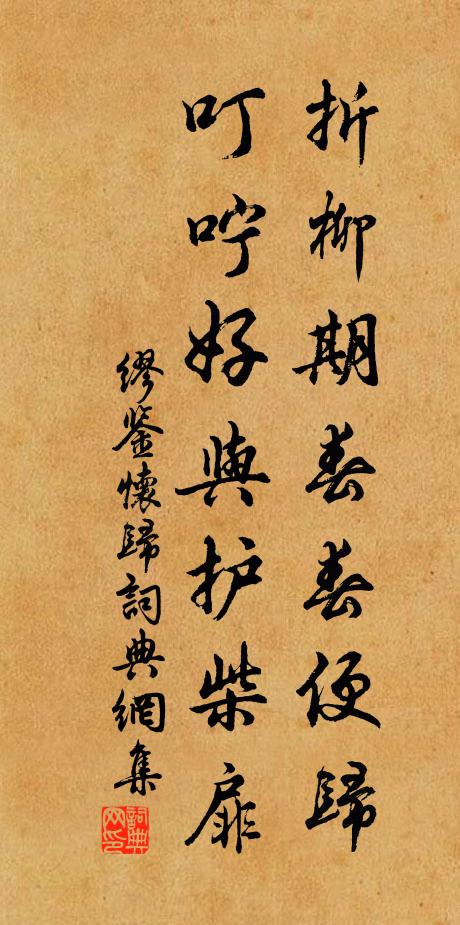 折柳期春春便歸
叮咛好與护柴扉
繆鉴懷歸詞典網集
詞典网印